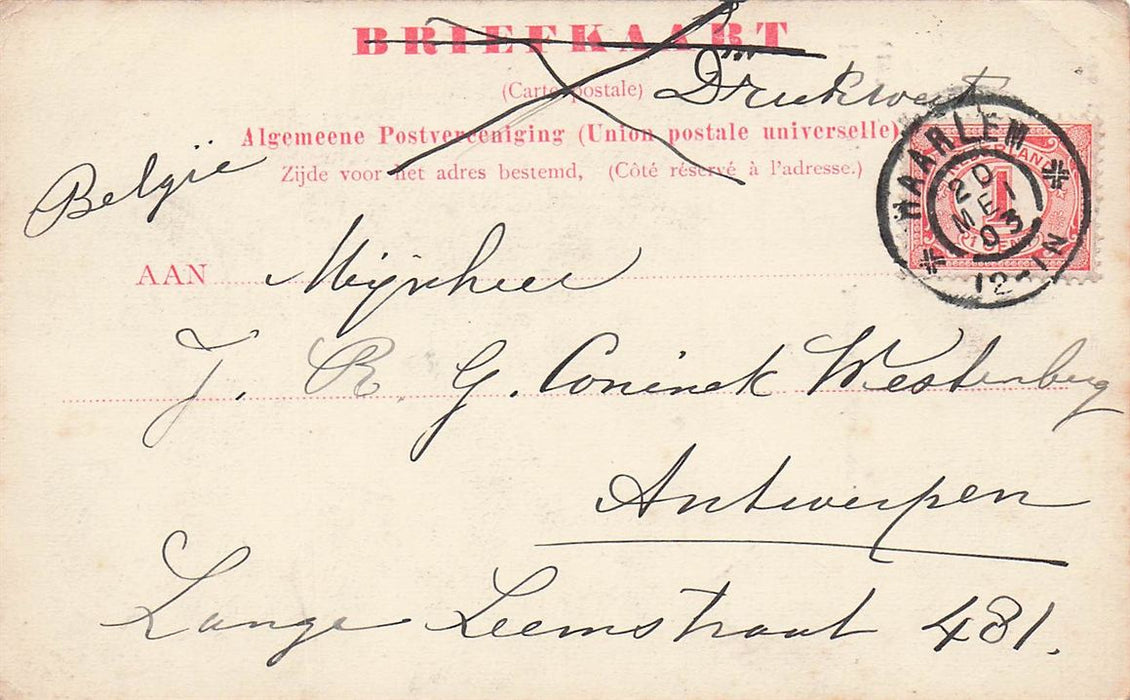 BRIEFKAART
(Carte postale) Drukwerk
Algemeene Postvereeniging (Union postale universelle)
Zijde voor het adres bestemd, (Côté réservé à l'adresse.)
België
HAARLEM
20
MEI
03
12-1N
1
AAN Mijnheer
J. R. G. Coninck Westenberg
Antwerpen
Lange Leemstraat 481.